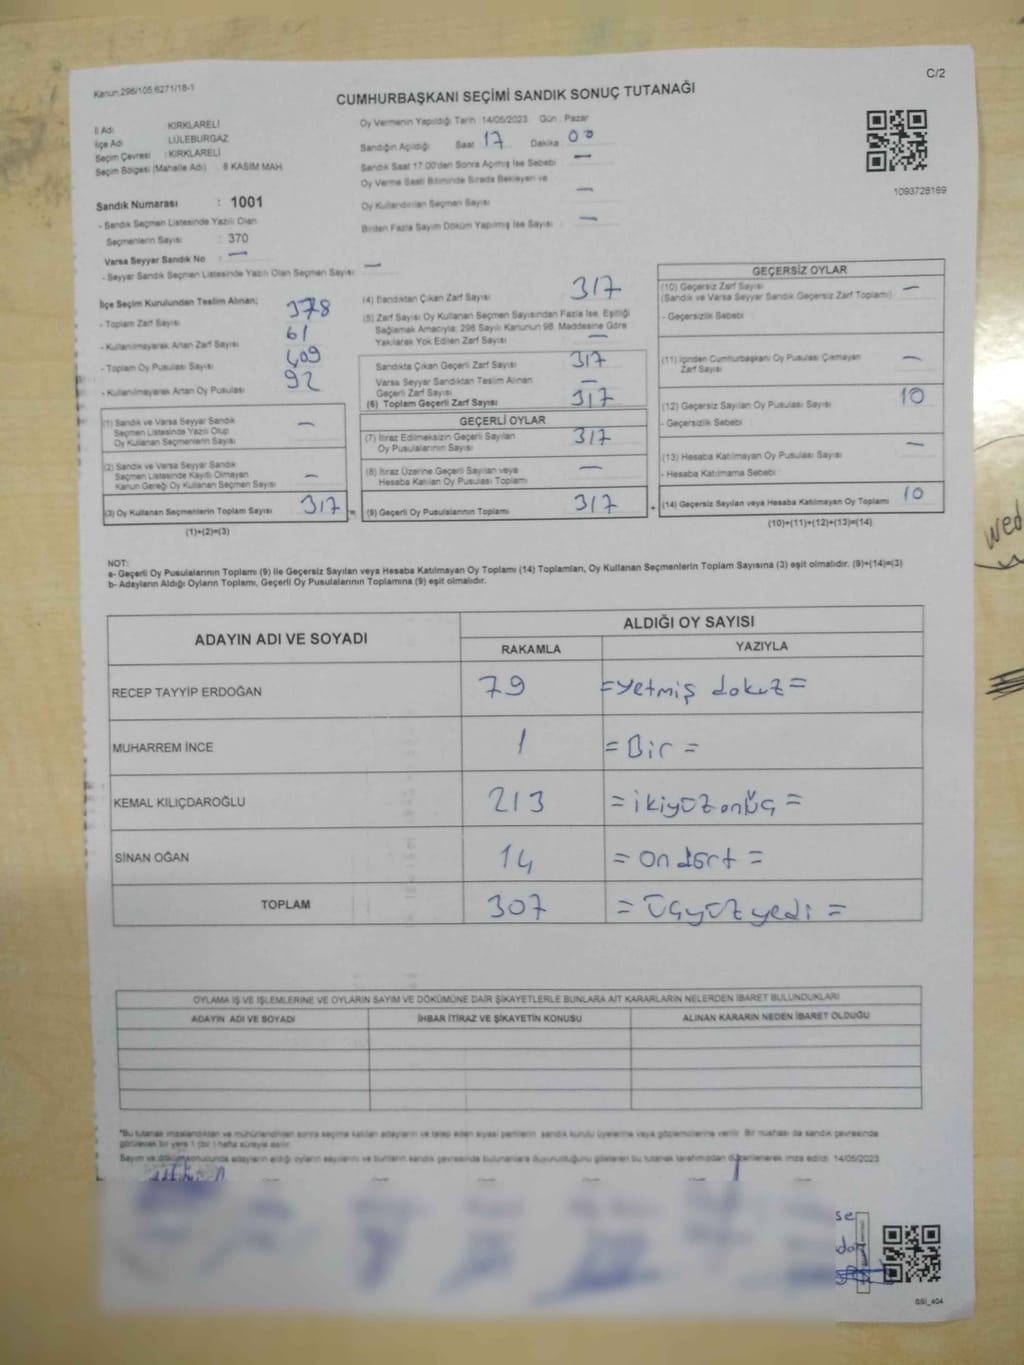 C/2
Kanun:298/105,6271/18-1
CUMHURBAŞKANI SEÇİMİ SANDIK SONUÇ TUTANAĞI
İl Adı : KIRKLARELİ
İlçe Adı : LÜLEBURGAZ
Seçim Çevresi : KIRKLARELİ
Seçim Bölgesi (Mahalle Adı) : 8 KASIM MAH
Sandık Numarası : 1001
- Sandık Seçmen Listesinde Yazılı Olan
Seçmenlerin Sayısı : 370
Varsa Seyyar Sandık No : —
- Seyyar Sandık Seçmen Listesinde Yazılı Olan Seçmen Sayısı : —
Oy Vermenin Yapıldığı Tarih : 14/05/2023 Gün : Pazar
Sandığın Açıldığı Saat : 17 Dakika : 00
Sandık Saat 17:00'den Sonra Açılmış İse Sebebi : —
Oy Verme Saati Bitiminde Sırada Bekleyen ve
Oy Kullandırılan Seçmen Sayısı : —
Birden Fazla Sayım Döküm Yapılmış İse Sayısı : —
1093728169
İlçe Seçim Kurulundan Teslim Alınan;
- Toplam Zarf Sayısı : 378
- Kullanılmayarak Artan Zarf Sayısı : 61
- Toplam Oy Pusulası Sayısı : 409
- Kullanılmayarak Artan Oy Pusulası : 92
(1) Sandık ve Varsa Seyyar Sandık
Seçmen Listesinde Yazılı Olup
Oy Kullanan Seçmenlerin Sayısı : —
(2) Sandık ve Varsa Seyyar Sandık
Seçmen Listesinde Kayıtlı Olmayan
Kanun Gereği Oy Kullanan Seçmen Sayısı : —
(3) Oy Kullanan Seçmenlerin Toplam Sayısı : 317 =
(1)+(2)=(3)
(4) Sandıktan Çıkan Zarf Sayısı : 317
(5) Zarf Sayısı Oy Kullanan Seçmen Sayısından Fazla İse, Eşitliği
Sağlamak Amacıyla; 298 Sayılı Kanunun 98. Maddesine Göre
Yakılarak Yok Edilen Zarf Sayısı : —
Sandıkta Çıkan Geçerli Zarf Sayısı : 317
Varsa Seyyar Sandıktan Teslim Alınan
Geçerli Zarf Sayısı : —
(6) Toplam Geçerli Zarf Sayısı : 317
GEÇERLİ OYLAR
(7) İtiraz Edilmeksizin Geçerli Sayılan
Oy Pusulalarının Sayısı : 317
(8) İtiraz Üzerine Geçerli Sayılan veya
Hesaba Katılan Oy Pusulası Toplamı : —
(9) Geçerli Oy Pusulalarının Toplamı : 317 +
GEÇERSİZ OYLAR
(10) Geçersiz Zarf Sayısı : —
(Sandık ve Varsa Seyyar Sandık Geçersiz Zarf Toplamı)
- Geçersizlik Sebebi :
(11) İçinden Cumhurbaşkanı Oy Pusulası Çıkmayan
Zarf Sayısı : —
(12) Geçersiz Sayılan Oy Pusulası Sayısı : 10
- Geçersizlik Sebebi :
(13) Hesaba Katılmayan Oy Pusulası Sayısı : —
- Hesaba Katılmama Sebebi :
(14) Geçersiz Sayılan veya Hesaba Katılmayan Oy Toplamı : 10
(10)+(11)+(12)+(13)=(14)
NOT:
a- Geçerli Oy Pusulalarının Toplamı (9) ile Geçersiz Sayılan veya Hesaba Katılmayan Oy Toplamı (14) Toplamları, Oy Kullanan Seçmenlerin Toplam Sayısına (3) eşit olmalıdır. (9)+(14)=(3)
b- Adayların Aldığı Oyların Toplamı, Geçerli Oy Pusulalarının Toplamına (9) eşit olmalıdır.
ADAYIN ADI VE SOYADI ALDIĞI OY SAYISI
RAKAMLA YAZIYLA
RECEP TAYYİP ERDOĞAN 79 =yetmiş dokuz=
MUHARREM İNCE 1 =Bir=
KEMAL KILIÇDAROĞLU 213 =ikiyüzonüç=
SİNAN OĞAN 14 =on dört=
TOPLAM 307 =üçyüz yedi=
OYLAMA İŞ VE İŞLEMLERİNE VE OYLARIN SAYIM VE DÖKÜMÜNE DAİR ŞİKAYETLERLE BUNLARA AİT KARARLARIN NELERDEN İBARET BULUNDUKLARI
ADAYIN ADI VE SOYADI İHBAR İTİRAZ VE ŞİKAYETİN KONUSU ALINAN KARARIN NEDEN İBARET OLDUĞU
*Bu tutanak imzalandıktan ve mühürlendikten sonra seçime katılan adayların ve talep eden siyasi partilerin sandık kurulu üyelerine veya gözlemcilerine verilir. Bir nüshası da sandık çevresinde
görülecek bir yere 1 (bir) hafta süreyle asılır.
Sayım ve döküm sonucunda adayların aldığı oyların sayılarını ve bunların sandık çevresinde bulunanlara duyurulduğunu gösteren bu tutanak tarafımızdan düzenlenerek imza edildi. 14/05/2023
GSI_404